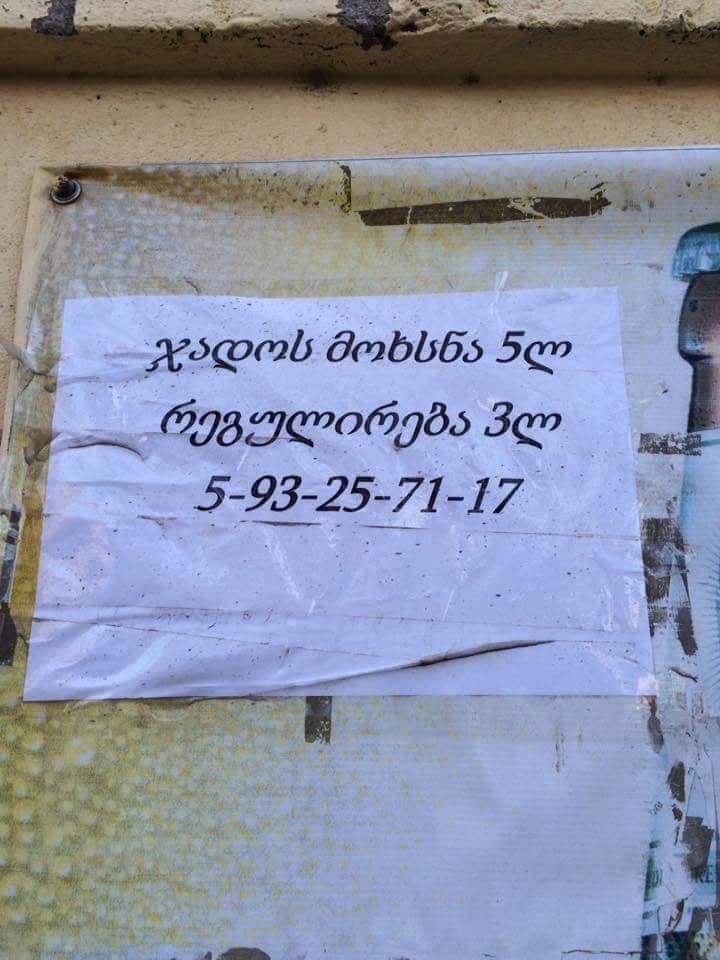 ჯადოს მოხსნა 5ლ
რეგულირება 3ლ
5-93-25-71-17